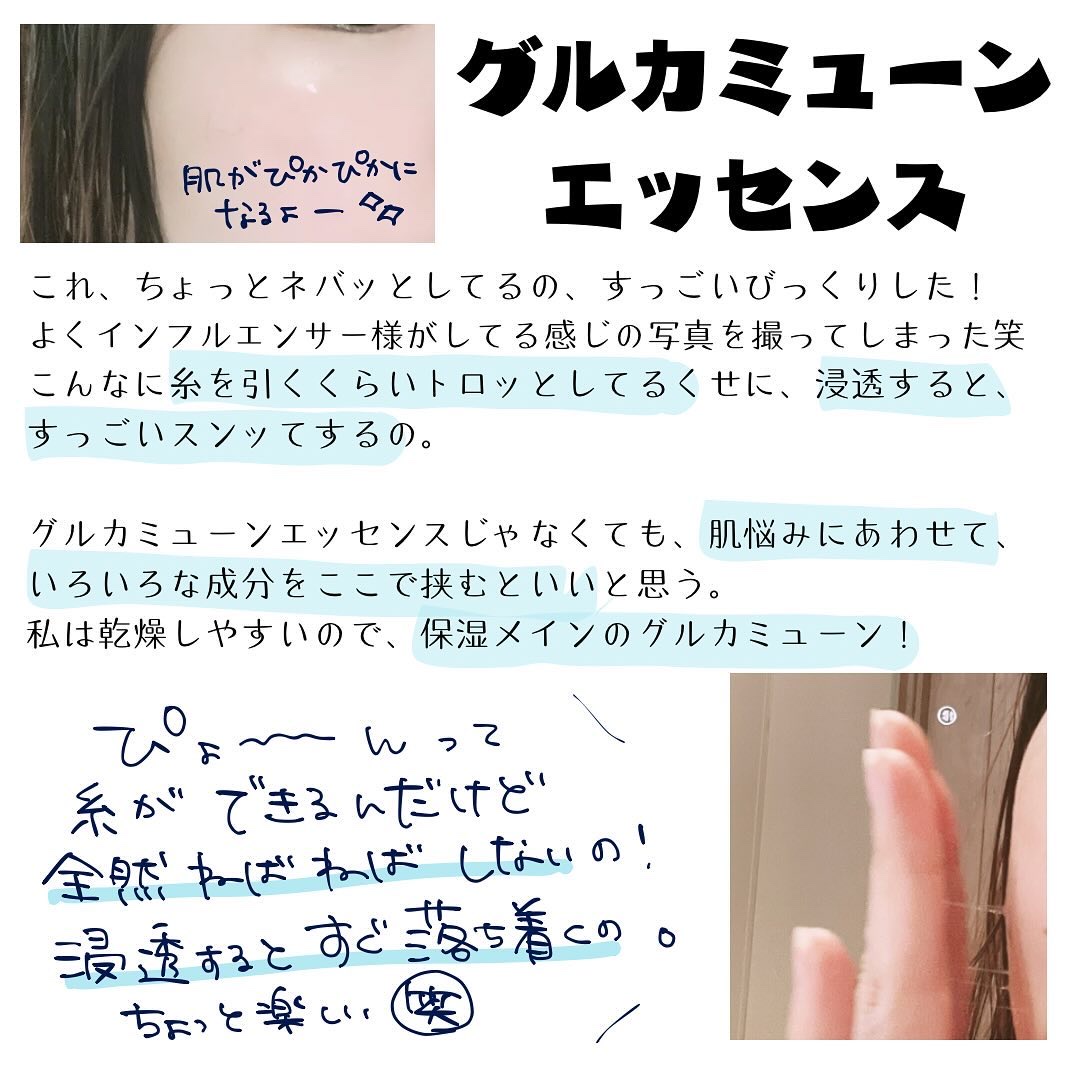 グルカミューン
エッセンス
肌がぴかぴかに
なるよー
これ、ちょっとネバッとしてるの、すっごいびっくりした！
よくインフルエンサー様がしてる感じの写真を撮ってしまった笑
こんなに糸を引くくらいトロッとしてるくせに、浸透すると、
すっごいスンッてするの。
グルカミューンエッセンスじゃなくても、肌悩みにあわせて、
いろいろな成分をここで挟むといいと思う。
私は乾燥しやすいので、保湿メインのグルカミューン！
ぴょ〜〜んって
糸ができるんだけど
全然ねばねばしないの！
浸透するとすぐ落ち着くの。
ちょっと楽しい 笑